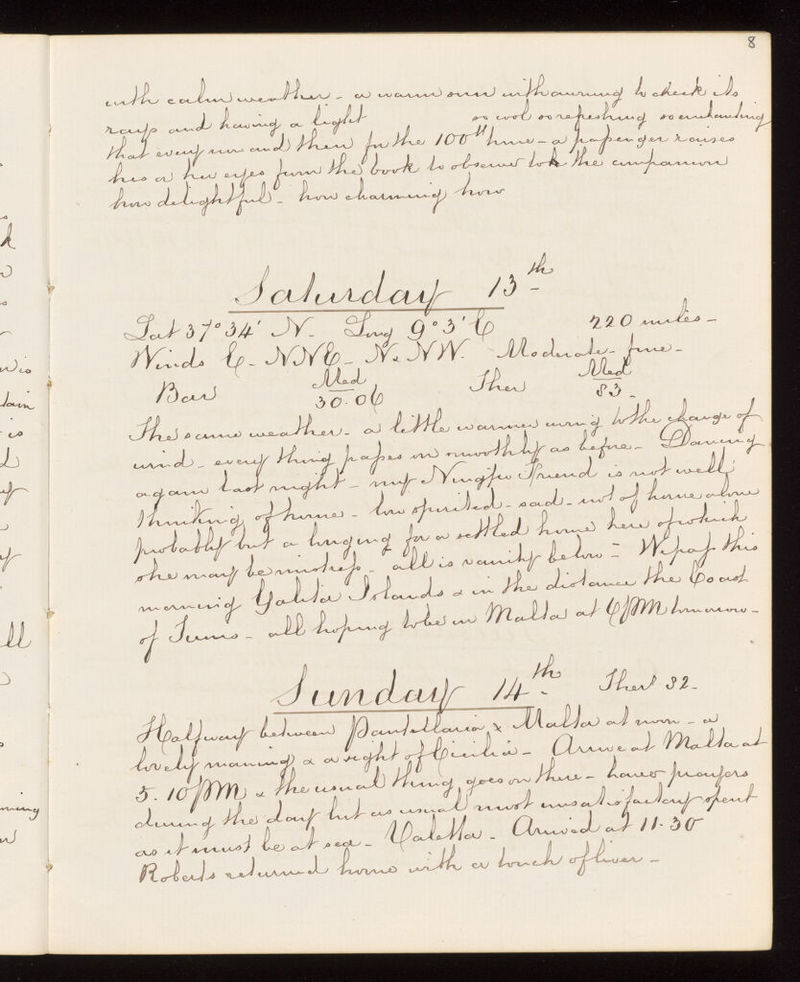 8
with calm weather - a warm sun with awning to check its
rays and having a light so cool so refreshing so enchanting
that every now and then for the 100th time - a passenger raises
his or her eyes from the book to observe to the companion
how delightful - how charming how
Saturday 13th
Lat 37° 34' N - Long 9° 3' E 220 miles -
Winds E - NNE - N & NW. Moderate - fine -
Bar Med 30.06 Ther Med 83 -
The same weather - a little warmer owing to the change of
wind - every thing passes on smoothly as before - Dancing
again last night - my Friend is not well
thinking of home - low spirited - sad - not of home alone
probably but a longing for a settled home here of which
she may be mistress - all is vanity below = We pass this
morning Galita Islands & in the distance the Coast
of Tunis - all hoping to be in Malta at 6 PM tomorrow -
Sunday 14th. Ther 82 -
Halfway between Pantellaria & Malta at noon - a
lovely morning & a sight of Cicilia - Arrive at Malta at
5.10 PM & the usual thing goes on there - have prayers
during the day but as usual most unsatisfactory spent
as it must be at sea - Valetta - Arrived at 11.30
Roberts returned home with a touch of liver -